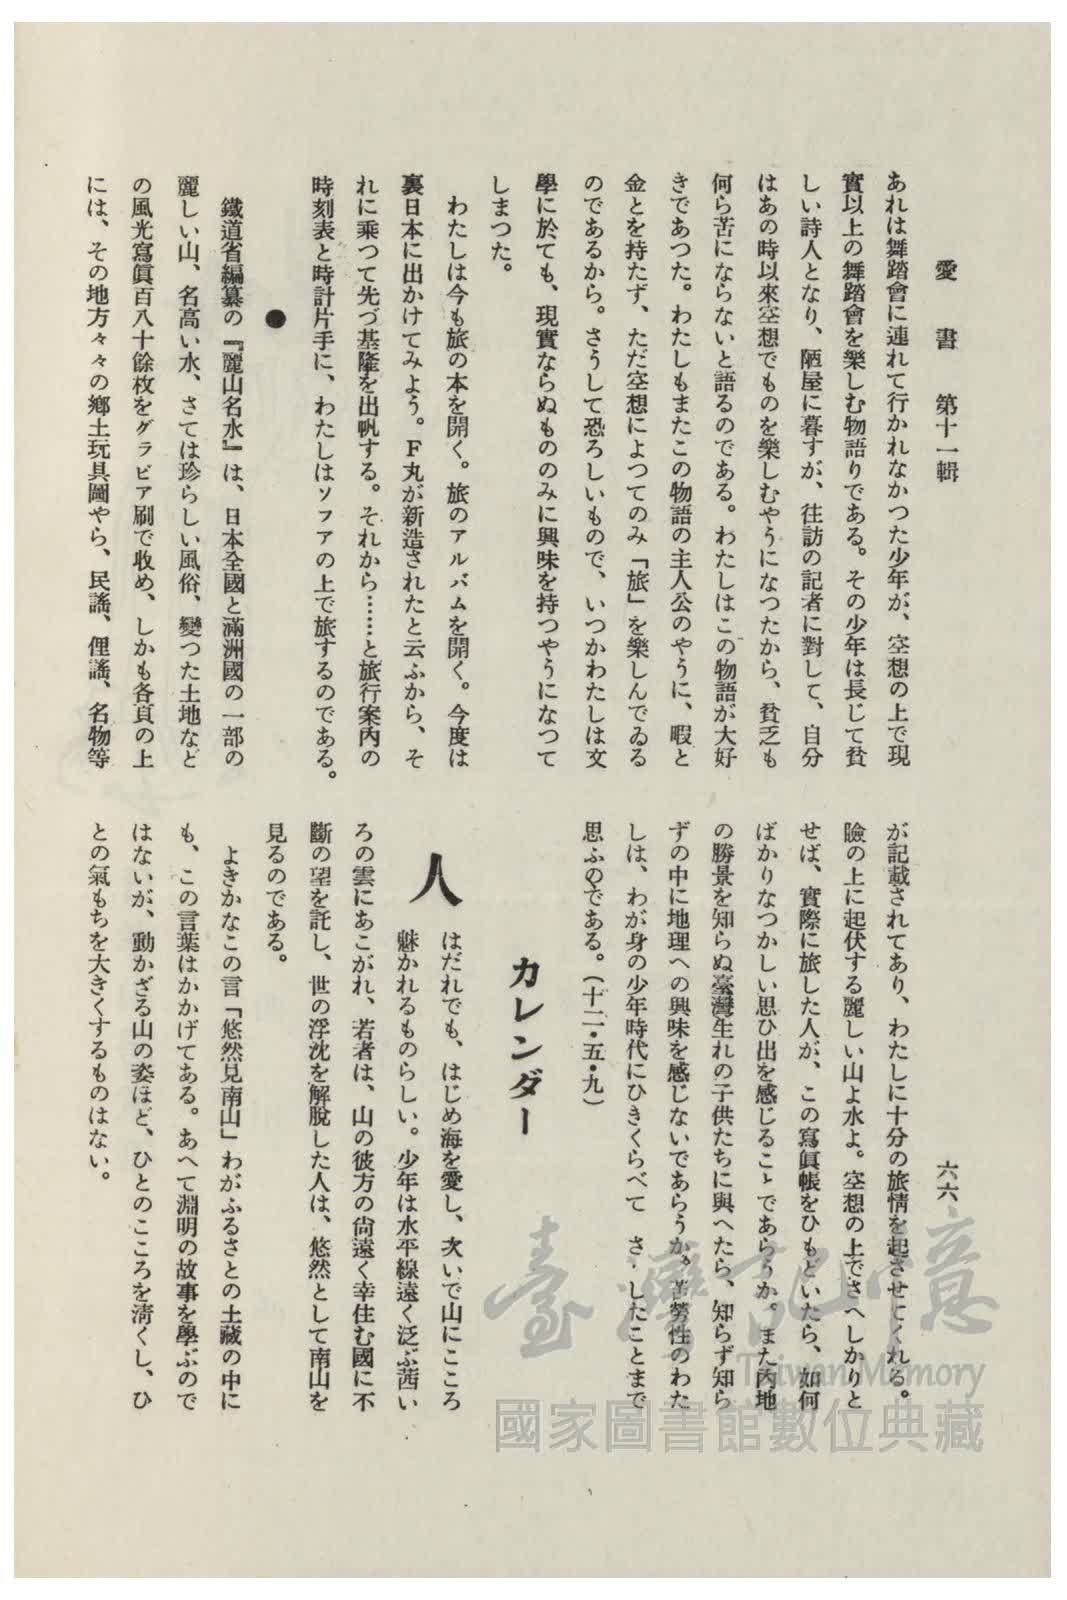 愛書 第十一輯
六六
あれは舞踏會に連れて行かれなかつた少年が、空想の上で現
實以上の舞踏會を樂しむ物語りである。その少年は長じて貧
しい詩人となり、陋屋に暮すが、往訪の記者に對して、自分
はあの時以來空想でものを樂しむやうになつたから、貧乏も
何ら苦にならないと語るのである。わたしはこの物語が大好
きであつた。わたしもまたこの物語の主人公のやうに、暇と
金とを持たず、ただ空想によつてのみ「旅」を樂しんでゐる
のであるから。さうして恐ろしいもので、いつかわたしは文
學に於ても、現實ならぬもののみに興味を持つやうになつて
しまつた。
わたしは今も旅の本を開く。旅のアルバムを開く。今度は
裏日本に出かけてみよう。F丸が新造されたと云ふから、そ
れに乘つて先づ基隆を出帆する。それから……と旅行案内の
時刻表と時計片手に、わたしはソファの上で旅するのである。
●
鐵道省編纂の『麗山名水』は、日本全國と滿洲國の一部の
麗しい山、名高い水、さては珍らしい風俗、變つた土地など
の風光寫眞百八十餘枚をグラビア刷で收め、しかも各頁の上
には、その地方々々の郷土玩具圖やら、民謠、俚謠、名物等
が記載されてあり、わたしに十分の旅情を起させてくれる。
險の上に起伏する麗しい山よ水よ。空想の上でさへしかりと
せば、實際に旅した人が、この寫眞帳をひもどいたら、如何
ばかりなつかしい思ひ出を感じることであらうか。また内地
の勝景を知らぬ臺灣生れの子供たちに與へたら、知らず知ら
ずの中に地理への興味を感じないであらうか。苦勞性のわた
しは、わが身の少年時代にひきくらべて さ したことまで
思ふのである。（十二・五・九）
カレンダー
人はだれでも、はじめ海を愛し、次いで山にこころ
魅かれるものらしい。少年は水平線遠く泛ぶ茜い
ろの雲にあこがれ、若者は、山の彼方の尙遠く幸住む國に不
斷の望を託し、世の浮沈を解脫した人は、悠然として南山を
見るのである。
よきかなこの言「悠然見南山」わがふるさとの土藏の中に
も、この言葉はかかげてある。あへて淵明の故事を學ぶので
はないが、動かざる山の姿ほど、ひとのこころを淸くし、ひ
との氣もちを大きくするものはない。
臺灣記憶
Taiwan Memory
國家圖書館數位典藏